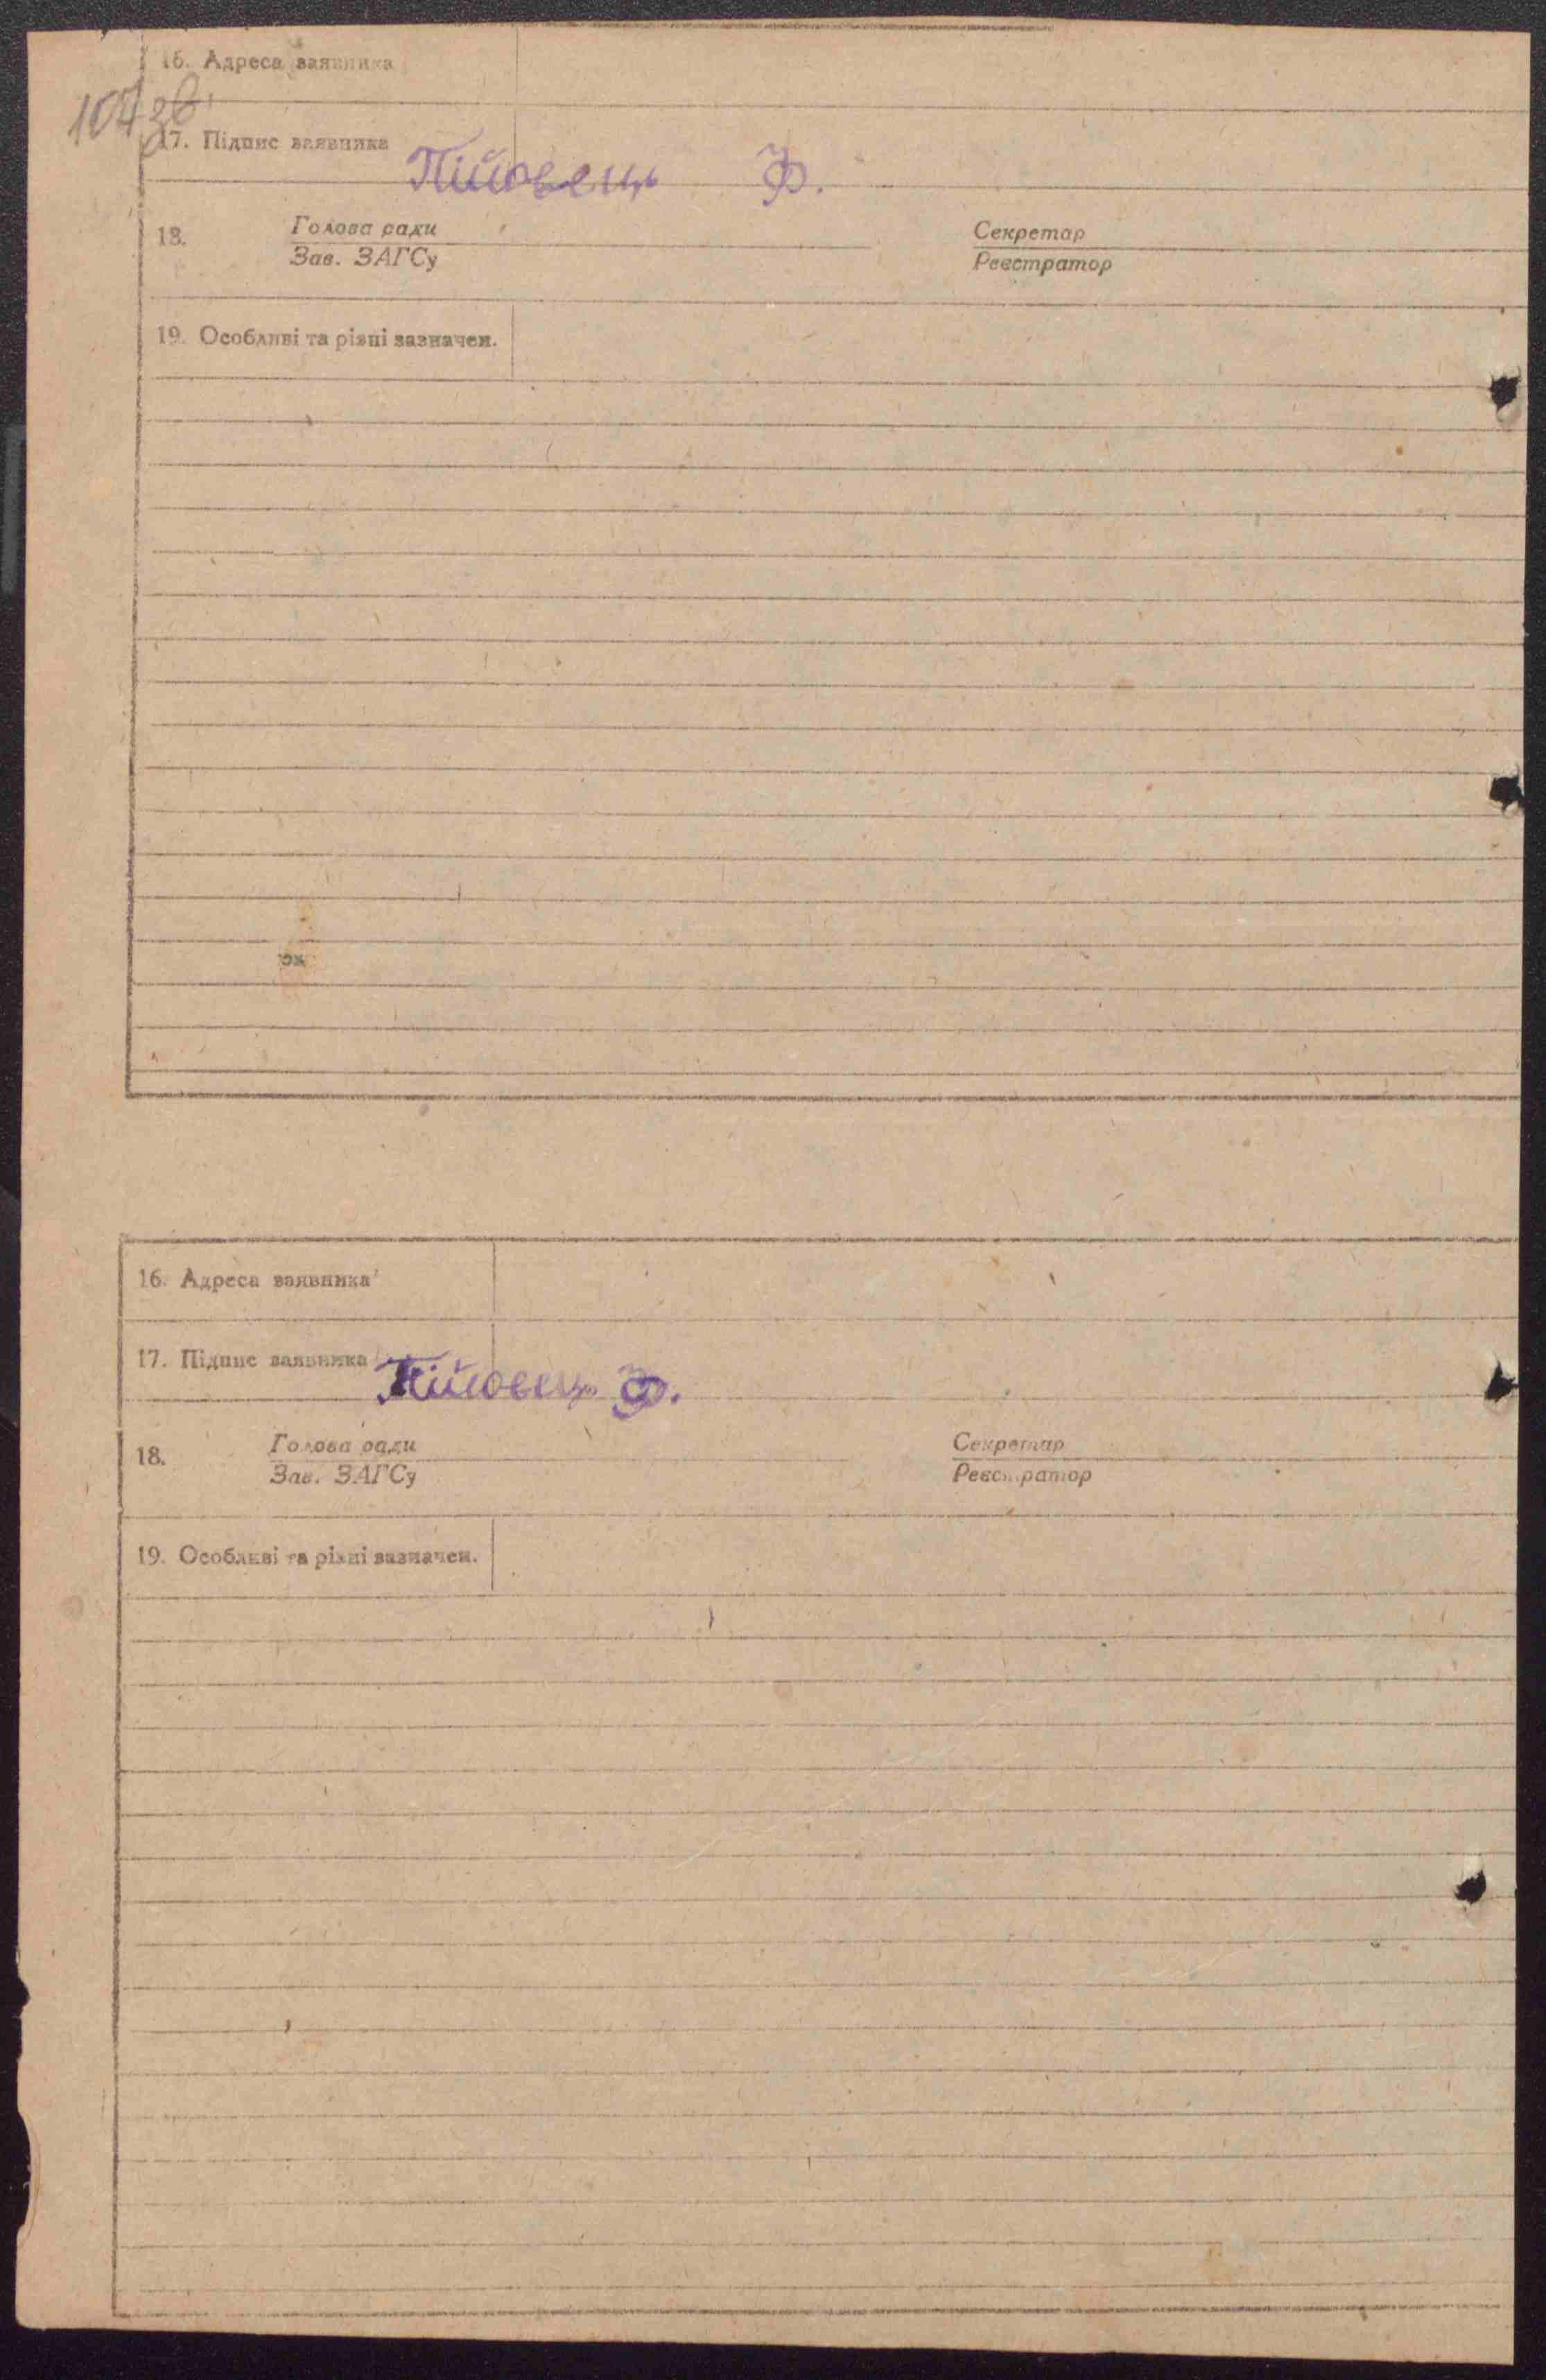 16. Адреса заявника
107 зв.
17. Підпис заявника
Ф.
18. Голова ради Секретар
Зав. ЗАГСу Реєстратор
19. Особливі та різні зазначен.
16. Адреса заявника
17. Підпис заявника
Ф.
18. Голова ради Секретар
Зав. ЗАГСу Реєстратор
19. Особливі та різні зазначен.